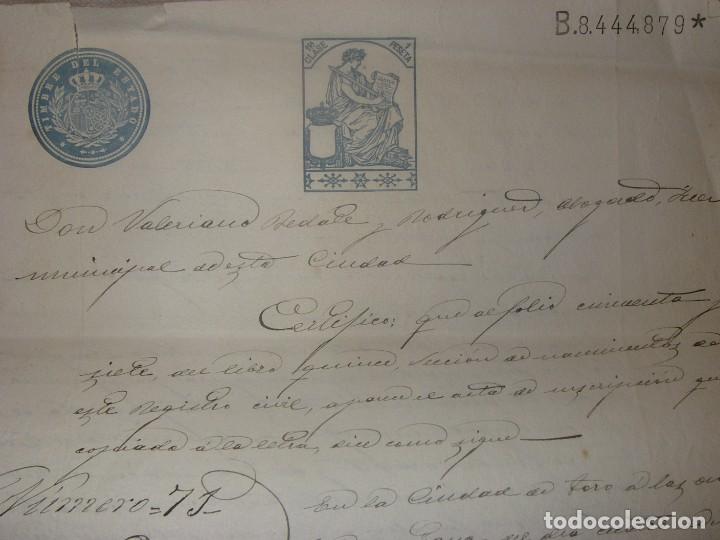 B.8.444,879*
TIMBRE DEL ESTADO
11ª CLASE 1 PESETA
Don Valeriano Bedate y Rodriguez, abogado, Juez
municipal de esta Ciudad
Certifico: que al folio cincuenta y
siete, del libro quince, Sección de nacimientos de
este Registro civil, aparece el acta de inscripción que
copiada á la letra, dice como sigue
Número=75
En la Ciudad de Toro á las
todocoleccion.net